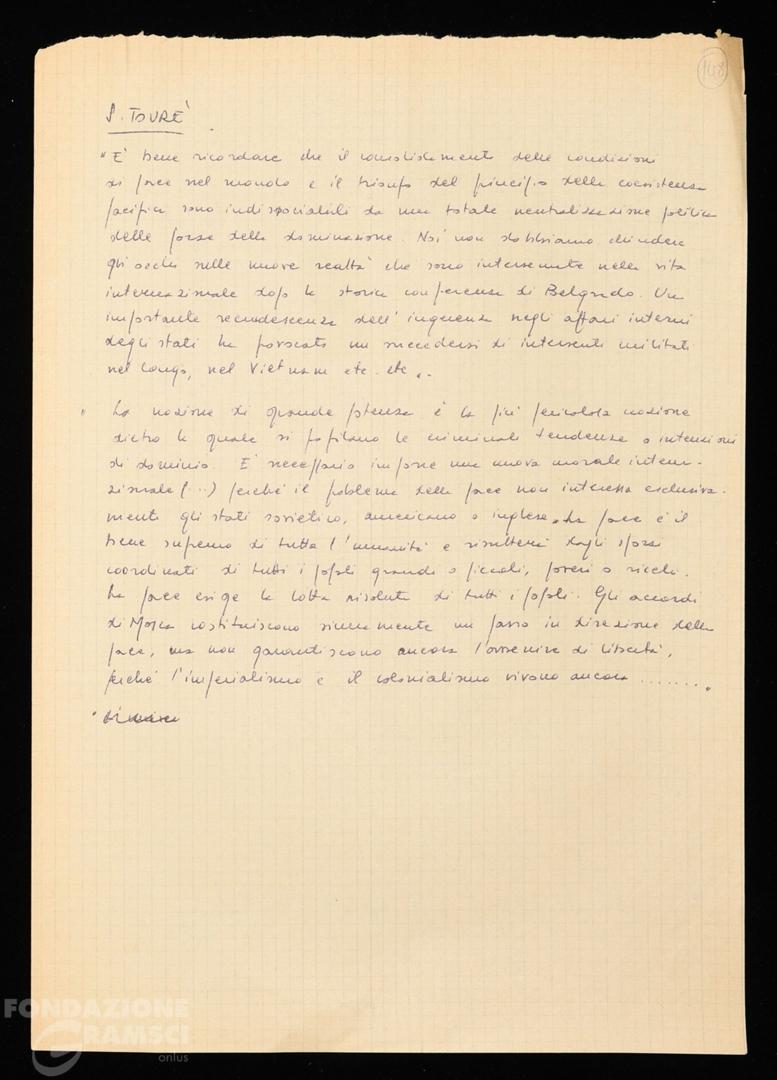 148
S. TOURE'
"E' bene ricordare che il consolidamento delle condizioni
di pace nel mondo e il trionfo del principio della coesistenza
pacifica sono indissociabili da una totale neutralizzazione politica
delle forze della dominazione. Noi non dobbiamo chiudere
gli occhi sulle nuove realtà che sono intervenute nella vita
internazionale dopo la storica conferenza di Belgrado. Una
importante recrudescenza dell'ingerenza negli affari interni
degli stati ha provocato un succedersi di interventi militari
nel Congo, nel Vietnam etc. etc."
" La nozione di grande potenza è la più pericolosa nozione
dietro la quale si profilano le criminali tendenze o intenzioni
di dominio. E' necessario imporre una nuova morale interna-
zionale (...) perché il problema della pace non interessa esclusiva-
mente gli stati sovietico, americano o inglese. La pace è il
bene supremo di tutta l'umanità e risulterà dagli sforzi
coordinati di tutti i popoli grandi o piccoli, poveri o ricchi.
La pace esige la lotta risoluta di tutti i popoli. Gli accordi
di Mosca costituiscono sicuramente un passo in direzione della
pace, ma non garantiscono ancora l'avvenire di libertà,
perché l'imperialismo e il colonialismo vivono ancora ........"
FONDAZIONE
GRAMSCI
onlus